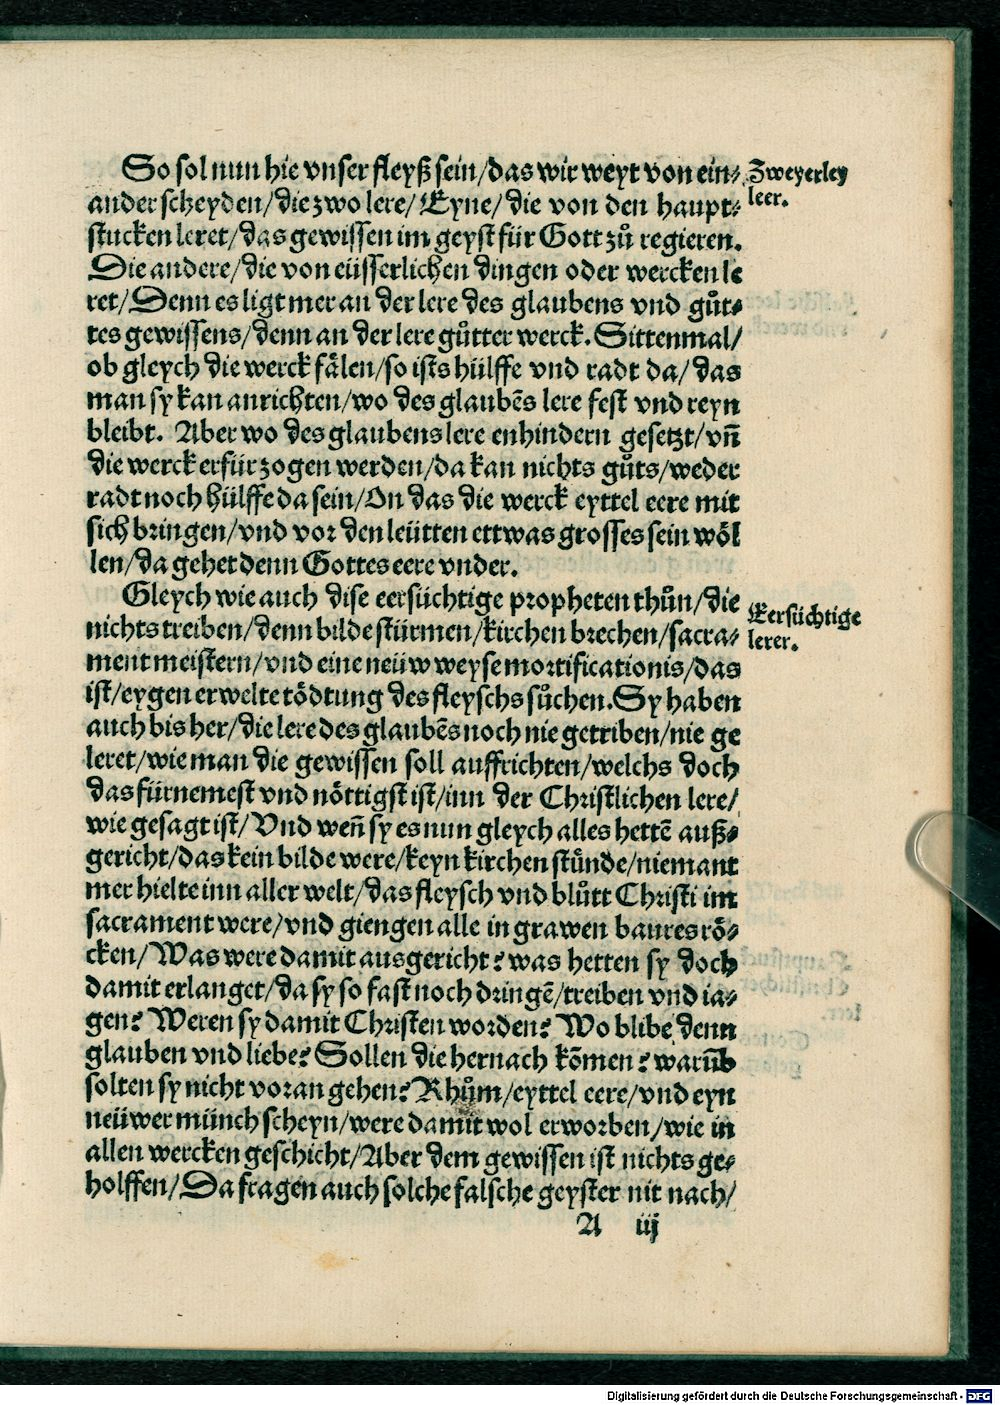 So sol nun hie vnser fleyß sein/das wir weyt von ein⸗
ander scheyden/die zwo lere/Eyne/die von den haupt⸗
stucken leret/das gewissen im geyst für Gott zů regieren.
Die andere/die von eüsserlichen dingen oder wercken le
ret/Denn es ligt mer an der lere des glaubens vnd gůt⸗
tes gewissens/denn an der lere gůtter werck. Sittenmal/
ob gleych die werck fälen/so ists hülffe vnd radt da/das
man sy kan anrichten/wo des glaubēs lere fest vnd reyn
bleibt. Aber wo des glaubens lere enhindern gesetzt/vñ
die werck erfür zogen werden/da kan nichts gůts/weder
radt noch hülffe da sein/On das die werck eyttel eere mit
sich bringen/vnd vor den leütten ettwas grosses sein wöl
len/da gehet denn Gottes eere vnder.
Gleych wie auch dise eersüchtige propheten thůn/die
nichts treiben/denn bilde stürmen/kirchen brechen/sacra⸗
ment meistern/vnd eine neüw weyse mortificationis/das
ist/eygen erwelte tödtung des fleyschs sůchen. Sy haben
auch bis her/die lere des glaubēs noch nie getriben/nie ge
leret/wie man die gewissen soll auffrichten/welchs doch
das fürnemest vnd nöttigst ist/inn der Christlichen lere/
wie gesagt ist/Vnd weñ sy es nun gleych alles hettē auß⸗
gericht/das kein bilde were/keyn kirchen stünde/niemant
mer hielte inn aller welt/das fleysch vnd blůtt Christi im
sacrament were/vnd giengen alle in grawen baures rö⸗
cken/Was were damit ausgericht? was hetten sy doch
damit erlanget/da sy so fast noch dringē/treiben vnd ia⸗
gen? Weren sy damit Christen worden? Wo blibe denn
glauben vnd liebe? Sollen die hernach kōmen? warūb
solten sy nicht voran gehen? Rhům/eyttel eere/vnd eyn
neüwer münch scheyn/were damit wol erworben/wie in
allen wercken geschicht/Aber dem gewissen ist nichts ge⸗
holffen/Da fragen auch solche falsche geyster nit nach/
A iij
Zweyerley
leer.
Eersüchtige
lerer.
Digitalisierung gefördert durch die Deutsche Forschungsgemeinschaft - DFG